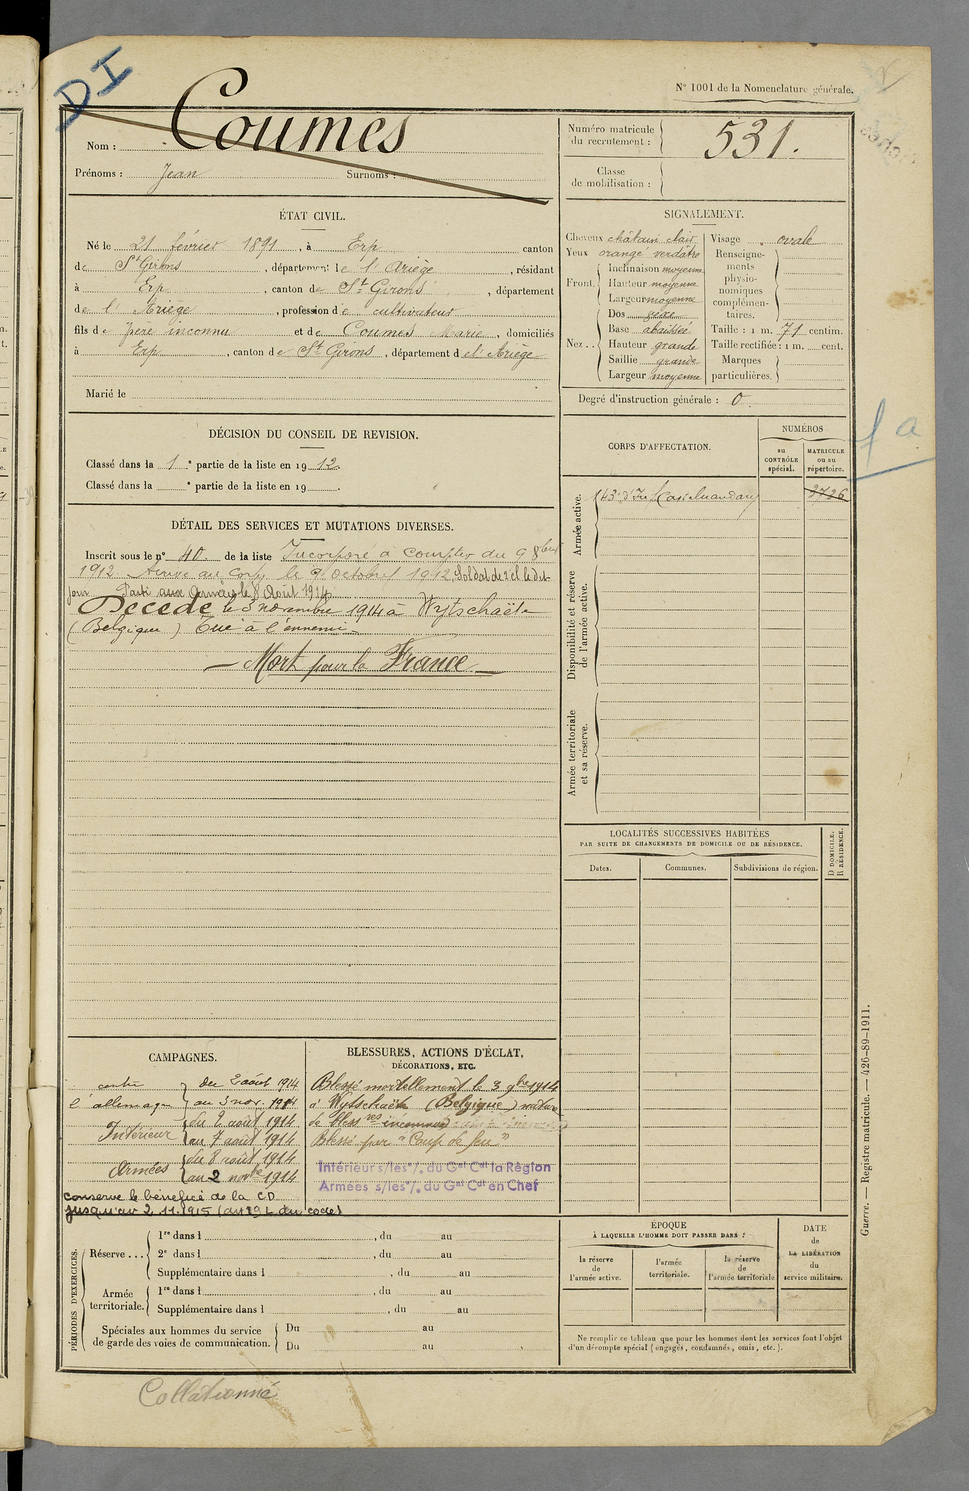 DI
N° 1001 de la Nomenclature générale.
Nom : Coumes
Prénoms : Jean Surnoms :
Numéro matricule du recrutement : 531.
Classe de mobilisation :
ÉTAT CIVIL.
Né le 21 février 1891, à Erp canton
de St Girons, département de l'Ariège, résidant
à Erp, canton de St Girons, département
de l'Ariège, profession de cultivateur
fils de père inconnu et de Coumes Marie, domiciliés
à Erp, canton de St Girons, département de l'Ariège
Marié le
SIGNALEMENT.
Cheveux châtain clair
Yeux orangé verdâtre
Front. Inclinaison moyenne
Hauteur moyenne
Largeur moyenne
Nez .. Dos
Base abaissée
Hauteur grande
Saillie grande
Largeur moyenne
Visage ovale
Renseignements physionomiques complémentaires.
Taille : 1 m. 71 centim.
Taille rectifiée : 1 m. cent.
Marques particulières.
Degré d'instruction générale : 0
DÉCISION DU CONSEIL DE REVISION.
Classé dans la 1e partie de la liste en 1912.
Classé dans la e partie de la liste en 19 .
DÉTAIL DES SERVICES ET MUTATIONS DIVERSES.
Inscrit sous le n° 40 de la liste Incorporé à compter du 9 8bre
1912. Arrivé au corps le 9 octobre 1912 Soldat de 2e cl le dit
jour Parti aux armées le 8 Août 1914
Décédé le 3 novembre 1914 à Wytschaëte
(Belgique) Tué à l'ennemi
— Mort pour la France —
CORPS D'AFFECTATION.
NUMÉROS
au CONTRÔLE spécial.
MATRICULE ou au répertoire.
fa
Armée active.
143e d'Inf Castelnaudary 3726
Disponibilité et réserve de l'armée active.
Armée territoriale et sa réserve.
LOCALITÉS SUCCESSIVES HABITÉES
PAR SUITE DE CHANGEMENTS DE DOMICILE OU DE RÉSIDENCE.
Dates. Communes. Subdivisions de région.
D DOMICILE. R RÉSIDENCE.
CAMPAGNES.
contre l'allemagne du 2 août 1914
au 3 nov. 1914
Intérieur du 2 août 1914
au 7 août 1914
Armées du 8 août 1914
au 2 novbre 1914
conserve le bénéfice de la CD
jusqu'au 2.11.1915 (art 19 L du code)
BLESSURES, ACTIONS D'ÉCLAT,
DÉCORATIONS, ETC.
Blessé mortellement le 3 9bre 1914
à Wytschaëte (Belgique) nature
de bless res inconnue
Blessé par "Coup de feu"
Intérieur s/les °/. du Gal Cdt la Région
Armées s/les °/. du Gal Cdt en Chef
PÉRIODES D'EXERCICES.
Réserve ... 1re dans l , du au
2e dans l , du au
Supplémentaire dans l , du au
Armée territoriale. 1re dans l , du au
Supplémentaire dans l , du au
Spéciales aux hommes du service de garde des voies de communication. Du au
Du au
ÉPOQUE
À LAQUELLE L'HOMME DOIT PASSER DANS :
la réserve de l'armée active.
l'armée territoriale.
la réserve de l'armée territoriale
DATE de LA LIBÉRATION du service militaire.
Ne remplir ce tableau que pour les hommes dont les services font l'objet
d'un décompte spécial (engagés, condamnés, omis, etc.).
Guerre. — Registre matricule. — 426-89-1911.
Collationné